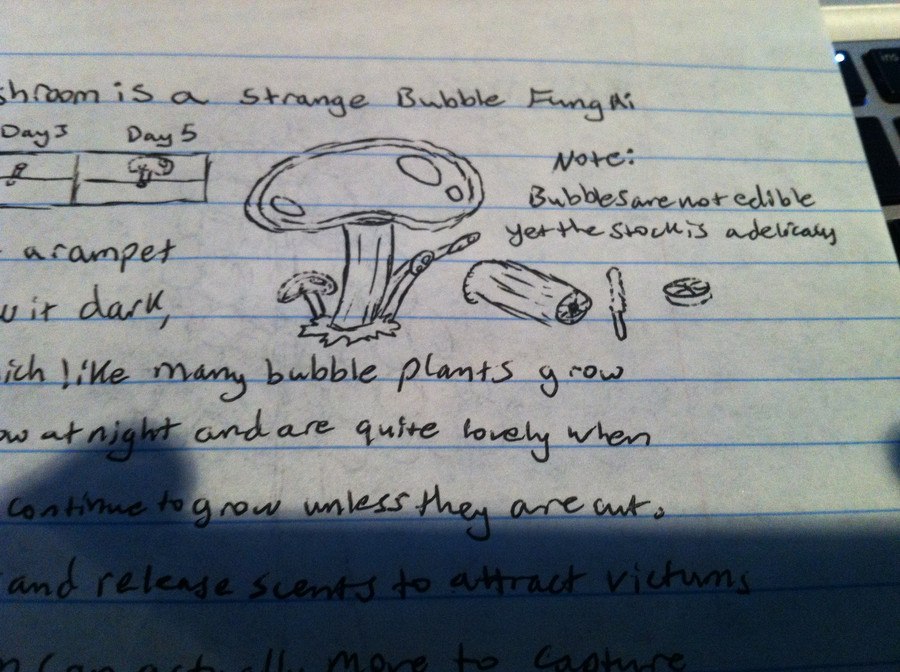 shroom is a strange Bubble Fungai
Day 3 Day 5
Note:
Bubbles are not edible
yet the stock is a delicasy
a rampet
it dark,
ich like many bubble plants grow
ow at night and are quite lovely when
continue to grow unless they are cut.
and release scents to attract victums
can actually move to capture
ins